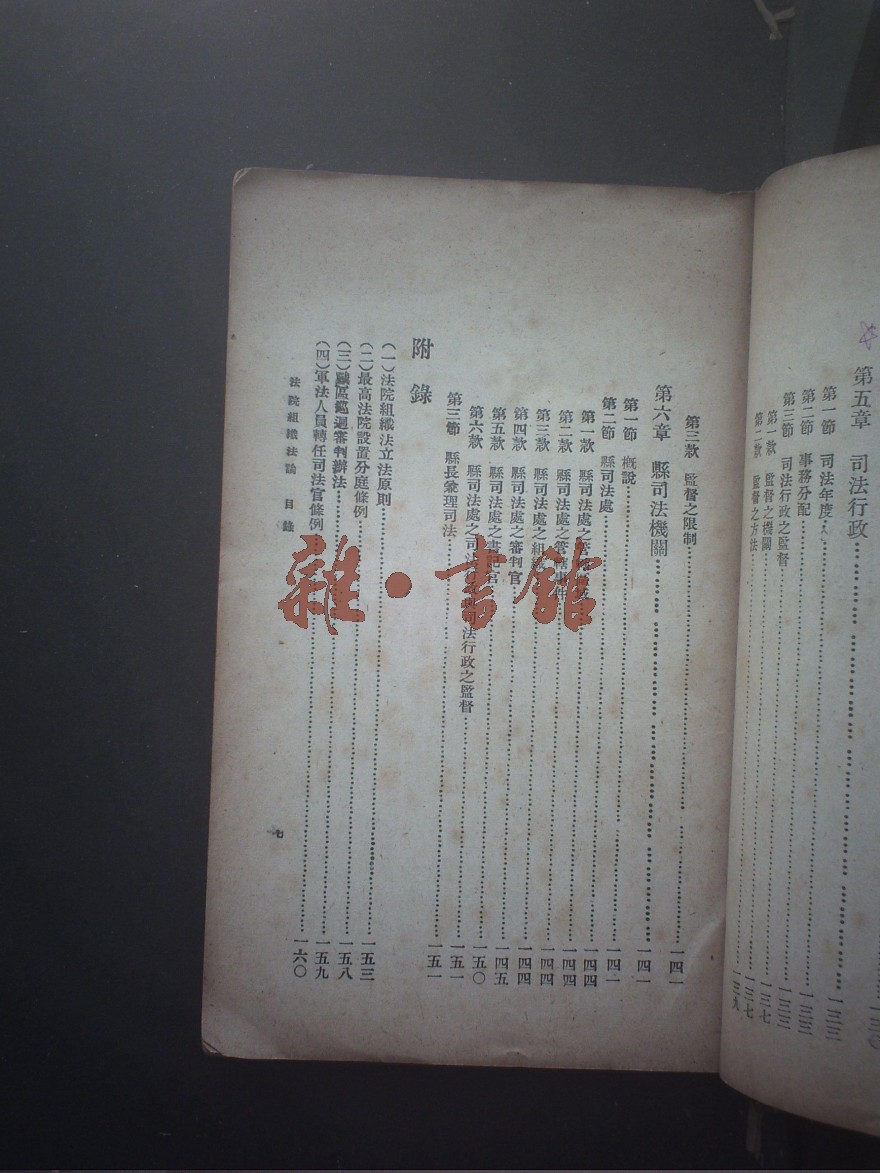 一三〇
第五章 司法行政……一三三
第一節 司法年度……一三三
第二節 事務分配……一三三
第三節 司法行政之監督……一三七
第一款 監督之機關……一三七
第二款 監督之方法……一三九
第三款 監督之限制……一四一
第六章 縣司法機關……一四一
第一節 概說……一四一
第二節 縣司法處……一四四
第一款 縣司法處之管轄區域……一四四
第二款 縣司法處之管轄事件……一四四
第三款 縣司法處之組織……一四四
第四款 縣司法處之審判官……一四五
第五款 縣司法處之書記官……一五〇
第六款 縣司法處之司法行政及司法行政之監督……一五一
第三節 縣長兼理司法……一五一
附錄
(一)法院組織法立法原則……一五三
(二)最高法院設置分庭條例……一五八
(三)戰區巡迴審判辦法……一五九
(四)軍法人員轉任司法官條例……一六〇
法院組織法論 目錄
七
雜·書館